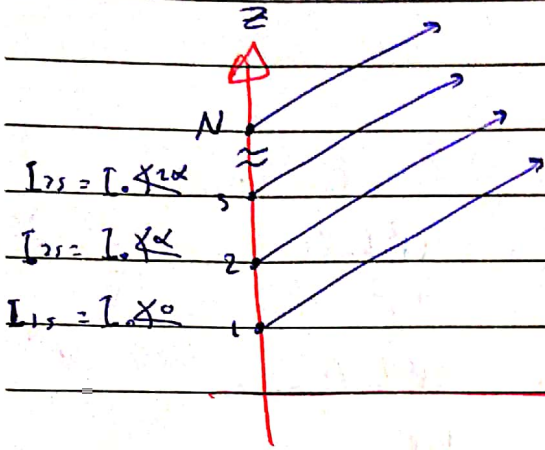 Z
N
I₃ₛ = I₀∡2α 3
I₂ₛ = I₀∡α 2
I₁ₛ = I₀∡0 1